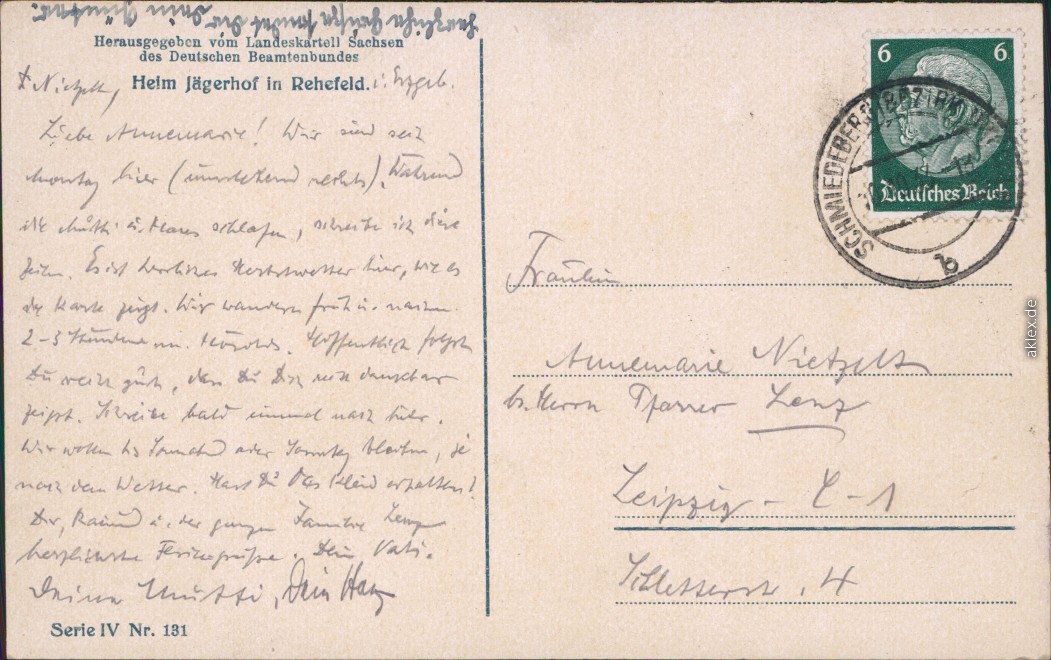 herzliche Grüße sendet Dir Dein Günther.
Herausgegeben vom Landeskartell Sachsen
des Deutschen Beamtenbundes
Heim Jägerhof in Rehefeld. i. Erzgeb.
Liebe Annemarie! Wir sind seit
Montag hier (umstehend rechts). Während
die Mutti u. schlafen, schreibe ich diese
Zeilen. Es ist herrliches Herbstwetter hier, wie es
die Karte zeigt. Wir wandern früh u. nachm.
2-3 Stunden Hoffentlich folgst
Du recht gut, daß Du Dich recht dankbar
zeigst. Schreibe bald einmal nach hier.
Wir wollen bis Sonnabd oder Sonntag bleiben, je
nach dem Wetter. Hast Du das Kleid erhalten?
Dir, u. der ganzen Familie Lenz
herzlichste Feriengrüße. Dein Vati.
Deine Mutti, Dein
Serie IV Nr. 131
6 6
Deutsches Reich
SCHMIEDEBERG (BEZIRK
b
Fräulein
Annemarie Nietzelt
b. Herrn Pfarrer Lenz
Leipzig - C - 1
Schletterstr. 4
aklex.de